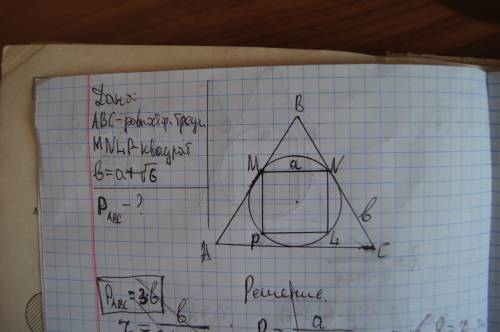 Дано:
ABC-равностор. треуг.
MNLP-квадрат
b=a+√6
P_ABC -?
B
M a N
b
P L
A C
P_ABC=3b
Решение.
b
a